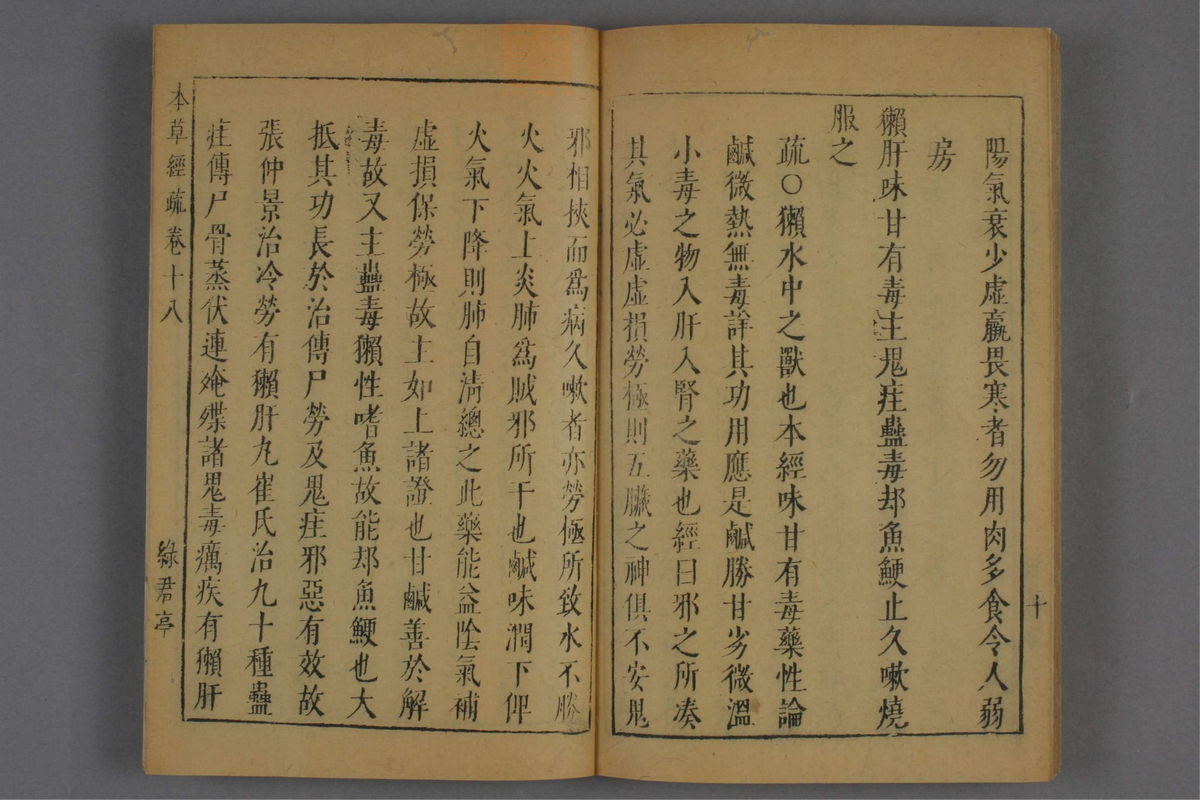 陽氣衰少虛羸畏寒者勿用肉多食令人弱
房
獺肝味甘有毒主鬼疰蠱毒却魚鯁止久嗽燒
服之
疏○獺水中之獸也本經味甘有毒藥性論
鹹微熱無毒詳其功用應是鹹勝甘劣微溫
小毒之物入肝入腎之藥也經曰邪之所湊
其氣必虛虛損勞極則五臟之神俱不安鬼
十
邪相挾而爲病久嗽者亦勞極所致水不勝
火火氣上炎肺爲賊邪所干也鹹味潤下俾
火氣下降則肺自淸總之此藥能益陰氣補
虛損保勞極故主如上諸證也甘鹹善於解
毒故又主蠱毒獺性嗜魚故能却魚鯁也大
抵其功長於治傳尸勞及鬼疰邪惡有效故
張仲景治冷勞有獺肝丸崔氏治九十種蠱
疰傳尸骨蒸伏連殗殜諸鬼毒癘疾有獺肝
本草經疏卷十八
綠君亭